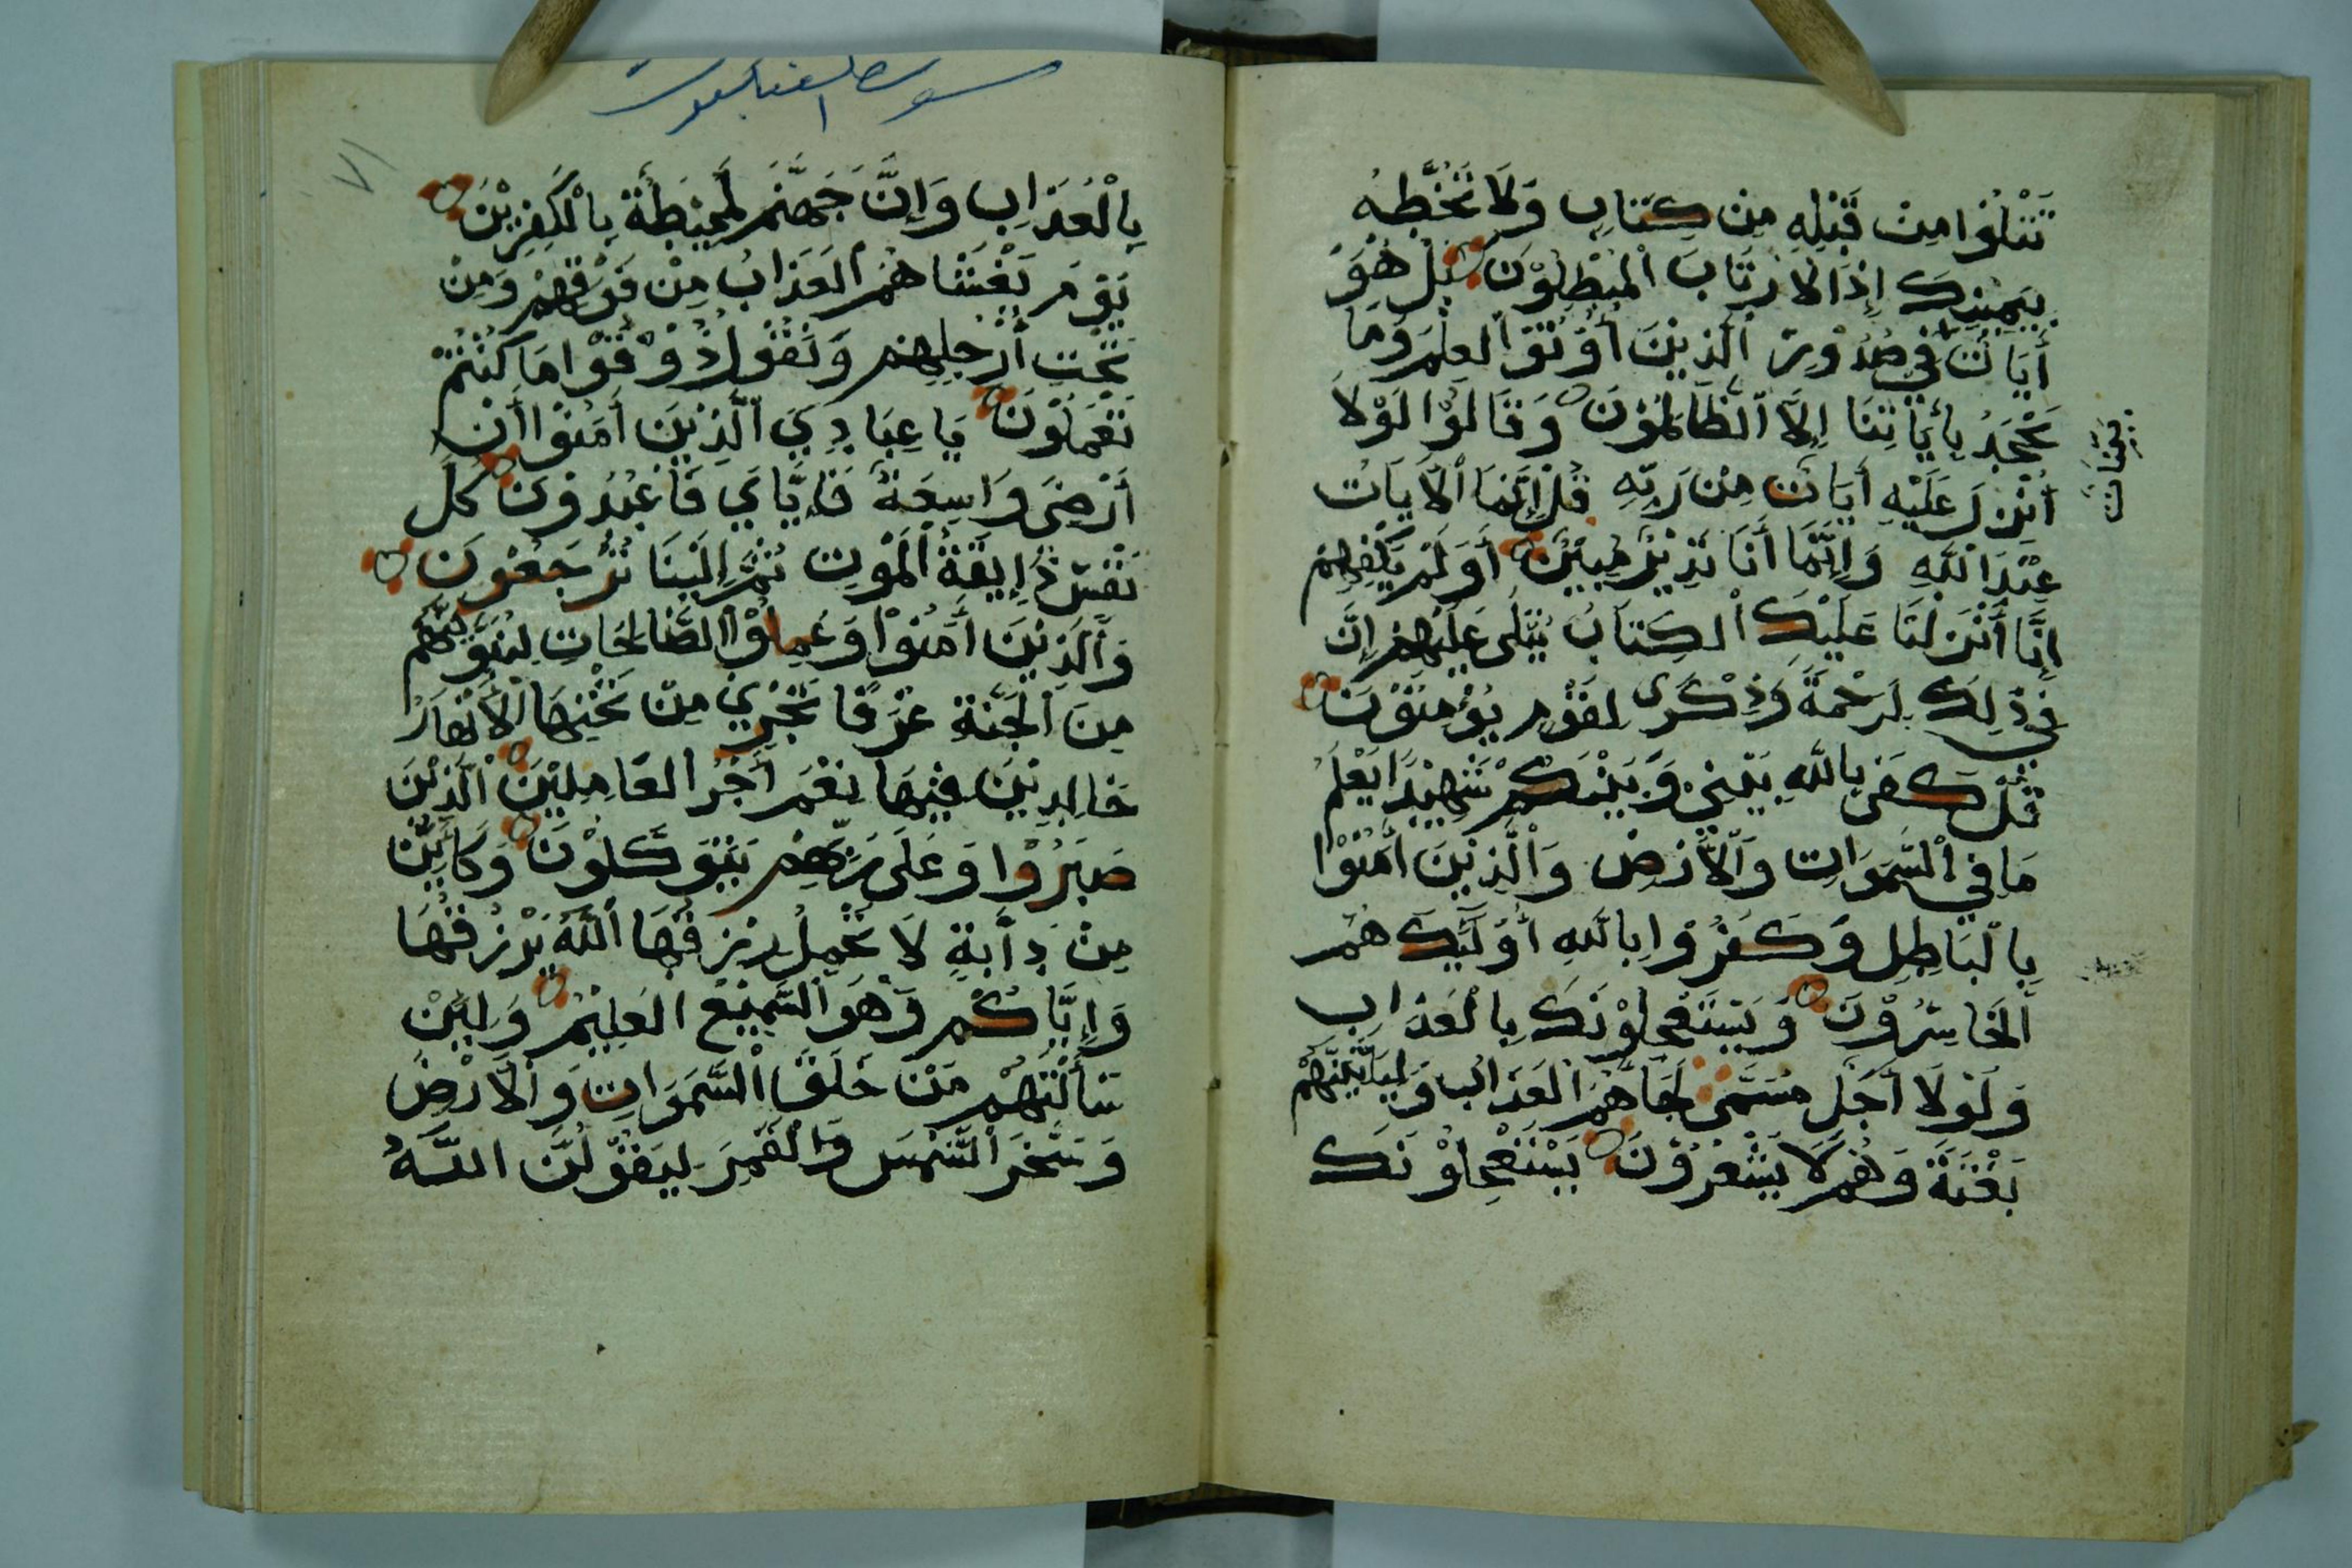 تَتْلُوا مِنْ قَبْلِهِ مِنْ كِتَابٍ وَلَا تَخُطُّهُ
بِيَمِيْنِكَ إِذًا لَا رْتَابَ الْمُبْطِلُوْنَ بَلْ هُوَ
أَيَاتٌ فِي صُدُوْرِ الَّذِيْنَ أُوْتُوْا الْعِلْمَ وَمَا
يَجْحَدُ بِأَيَاتِنَا إِلَّا الظَّالِمُوْنَ وَقَالُوْا لَوْلَا
أُنْزِلَ عَلَيْهِ أَيَاتٌ مِنْ رَبِّهِ قُلْ إِنَّمَا الْأَيَاتُ
عِنْدَ اللَّهِ وَإِنَّمَا أَنَا نَذِيْرٌ مُبِيْنٌ أَوَلَمْ يَكْفِهِمْ
إِنَّا أَنْزَلْنَا عَلَيْكَ الْكِتَابُ يُتْلَى عَلَيْهِمْ إِنَّ
فِي ذٰلِكَ لَرَحْمَةً وَذِكْرَى لِقَوْمٍ يُؤْمِنُوْنَ
قُلْ كَفَى بِاللَّهِ بَيْنِيْ وَبَيْنَكُمْ شَهِيْدًا يَعْلَمُ
مَا فِي السَّمَوَاتِ وَالْأَرْضِ وَالَّذِيْنَ أَمَنُوْا
بِالْبَاطِلِ وَكَفَرُوْا بِاللَّهِ أُوْلَٰئِكَ هُمُ
الْخَاسِرُوْنَ وَيَسْتَعْجِلُوْنَكَ بِالْعَذَابِ
وَلَوْلَا أَجَلٌ مُسَمًّى لَجَاهُمُ الْعَذَابُ وَلَيَأْتِيَنَّهُمْ
بَغْتَةً وَهُمْ لَا يَشْعُرُوْنَ يَسْتَعْجِلُوْنَكَ
بَيِّنَاتٌ
سورة العنكبوت
٧١
بِالْعَذَابِ وَإِنَّ جَهَنَّمَ لَمُحِيْطَةٌ بِالْكَفِرِيْنَ
يَوْمَ يَغْشَاهُمُ الْعَذَابُ مِنْ فَوْقِهِمْ وَمِنْ
تَحْتِ أَرْجُلِهِمْ وَنَقُوْلُ ذُوْقُوْا مَا كُنْتُمْ
تَعْمَلُوْنَ يَا عِبَادِيَ الَّذِيْنَ أَمَنُوْا أَنَّ
أَرْضِيَ وَاسِعَةٌ فَإِيَّايَ فَاعْبُدُوْنِ كُلُّ
نَفْسٍ ذَإِيقَةُ الْمَوْتِ ثُمَّ إِلَيْنَا تُرْجَعُوْنَ
وَالَّذِيْنَ أَمَنُوْا وَعَمِلُوْا الصَّالِحَاتِ لَنُبَوِّئَنَّهُمْ
مِنَ الْجَنَّةِ غُرَفًا تَجْرِيْ مِنْ تَحْتِهَا الْأَنْهَارُ
خَالِدِيْنَ فِيْهَا نِعْمَ أَجْرُ الْعَامِلِيْنَ الَّذِيْنَ
صَبَرُوْا وَعَلَى رَبِّهِمْ يَتَوَكَّلُوْنَ وَكَأَيِّنْ
مِنْ دَابَّةٍ لَا تَحْمِلُ رِزْقَهَا اللَّهُ يَرْزُقُهَا
وَإِيَّاكُمْ وَهُوَ السَّمِيْعُ الْعَلِيْمُ وَلَئِنْ
سَأَلْتَهُمْ مَنْ خَلَقَ السَّمَوَاتِ وَالْأَرْضَ
وَسَخَّرَ الشَّمْسَ وَالْقَمَرَ لَيَقُوْلُنَّ اللَّهُ